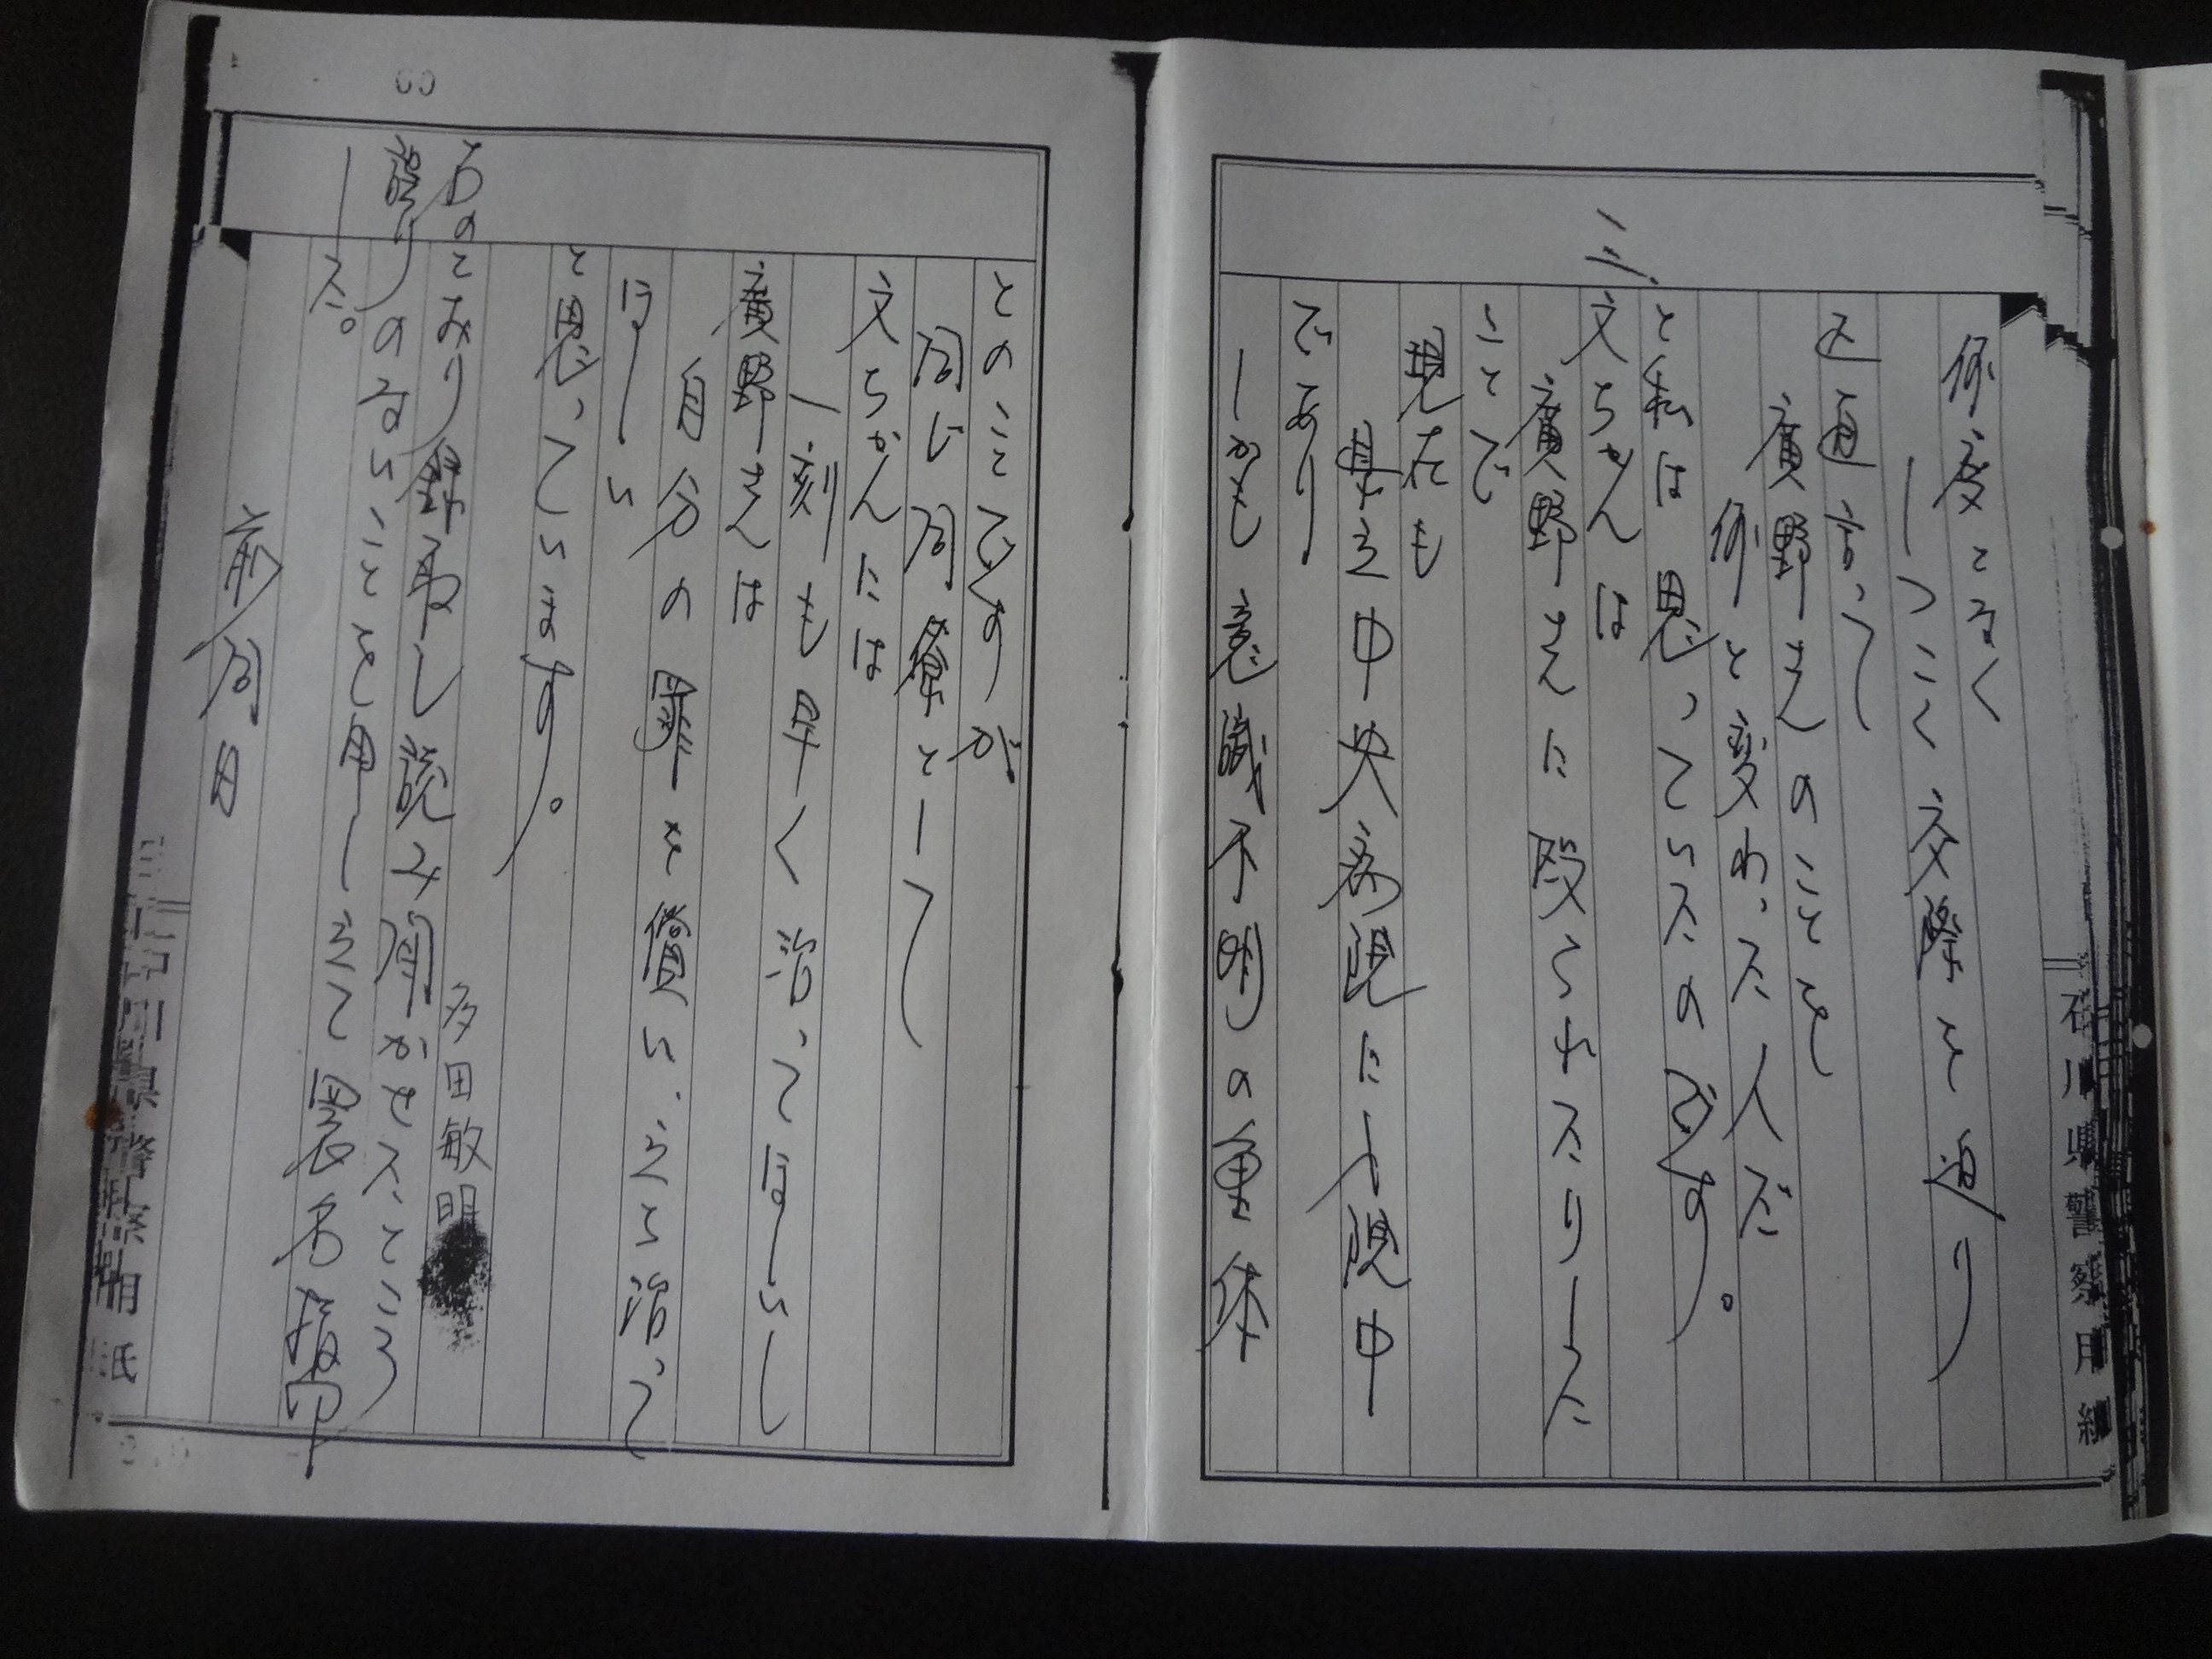 何度となく
しつこく交際を迫り
廣野さんのことを
何と変わった人だ
と私は思っていたのです。
三
文ちゃんは
廣野さんに殴られたりした
ことで
現在も
県立中央病院に入院中
であり
しかも意識不明の重体
石川県警察用紙
とのことですが
同じ同僚として
文ちゃんには
一刻も早く治ってほしいし
廣野さんは
自分の罪を償い、立ち治って
ほしい
と思っています。
多田敏明
右のとおり録取し読み聞かせたところ
誤りのないことを申し立て署名指印
した。
前同日
石川県警察用紙